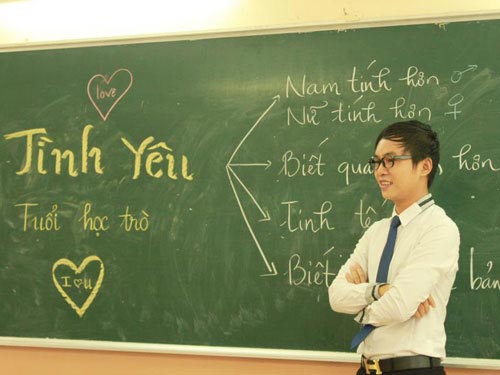 love
Tình Yêu
Tuổi học trò
I u
Nam tính hơn ♂
Nữ tính hơn ♀
Biết hơn
Tinh
Biết bản